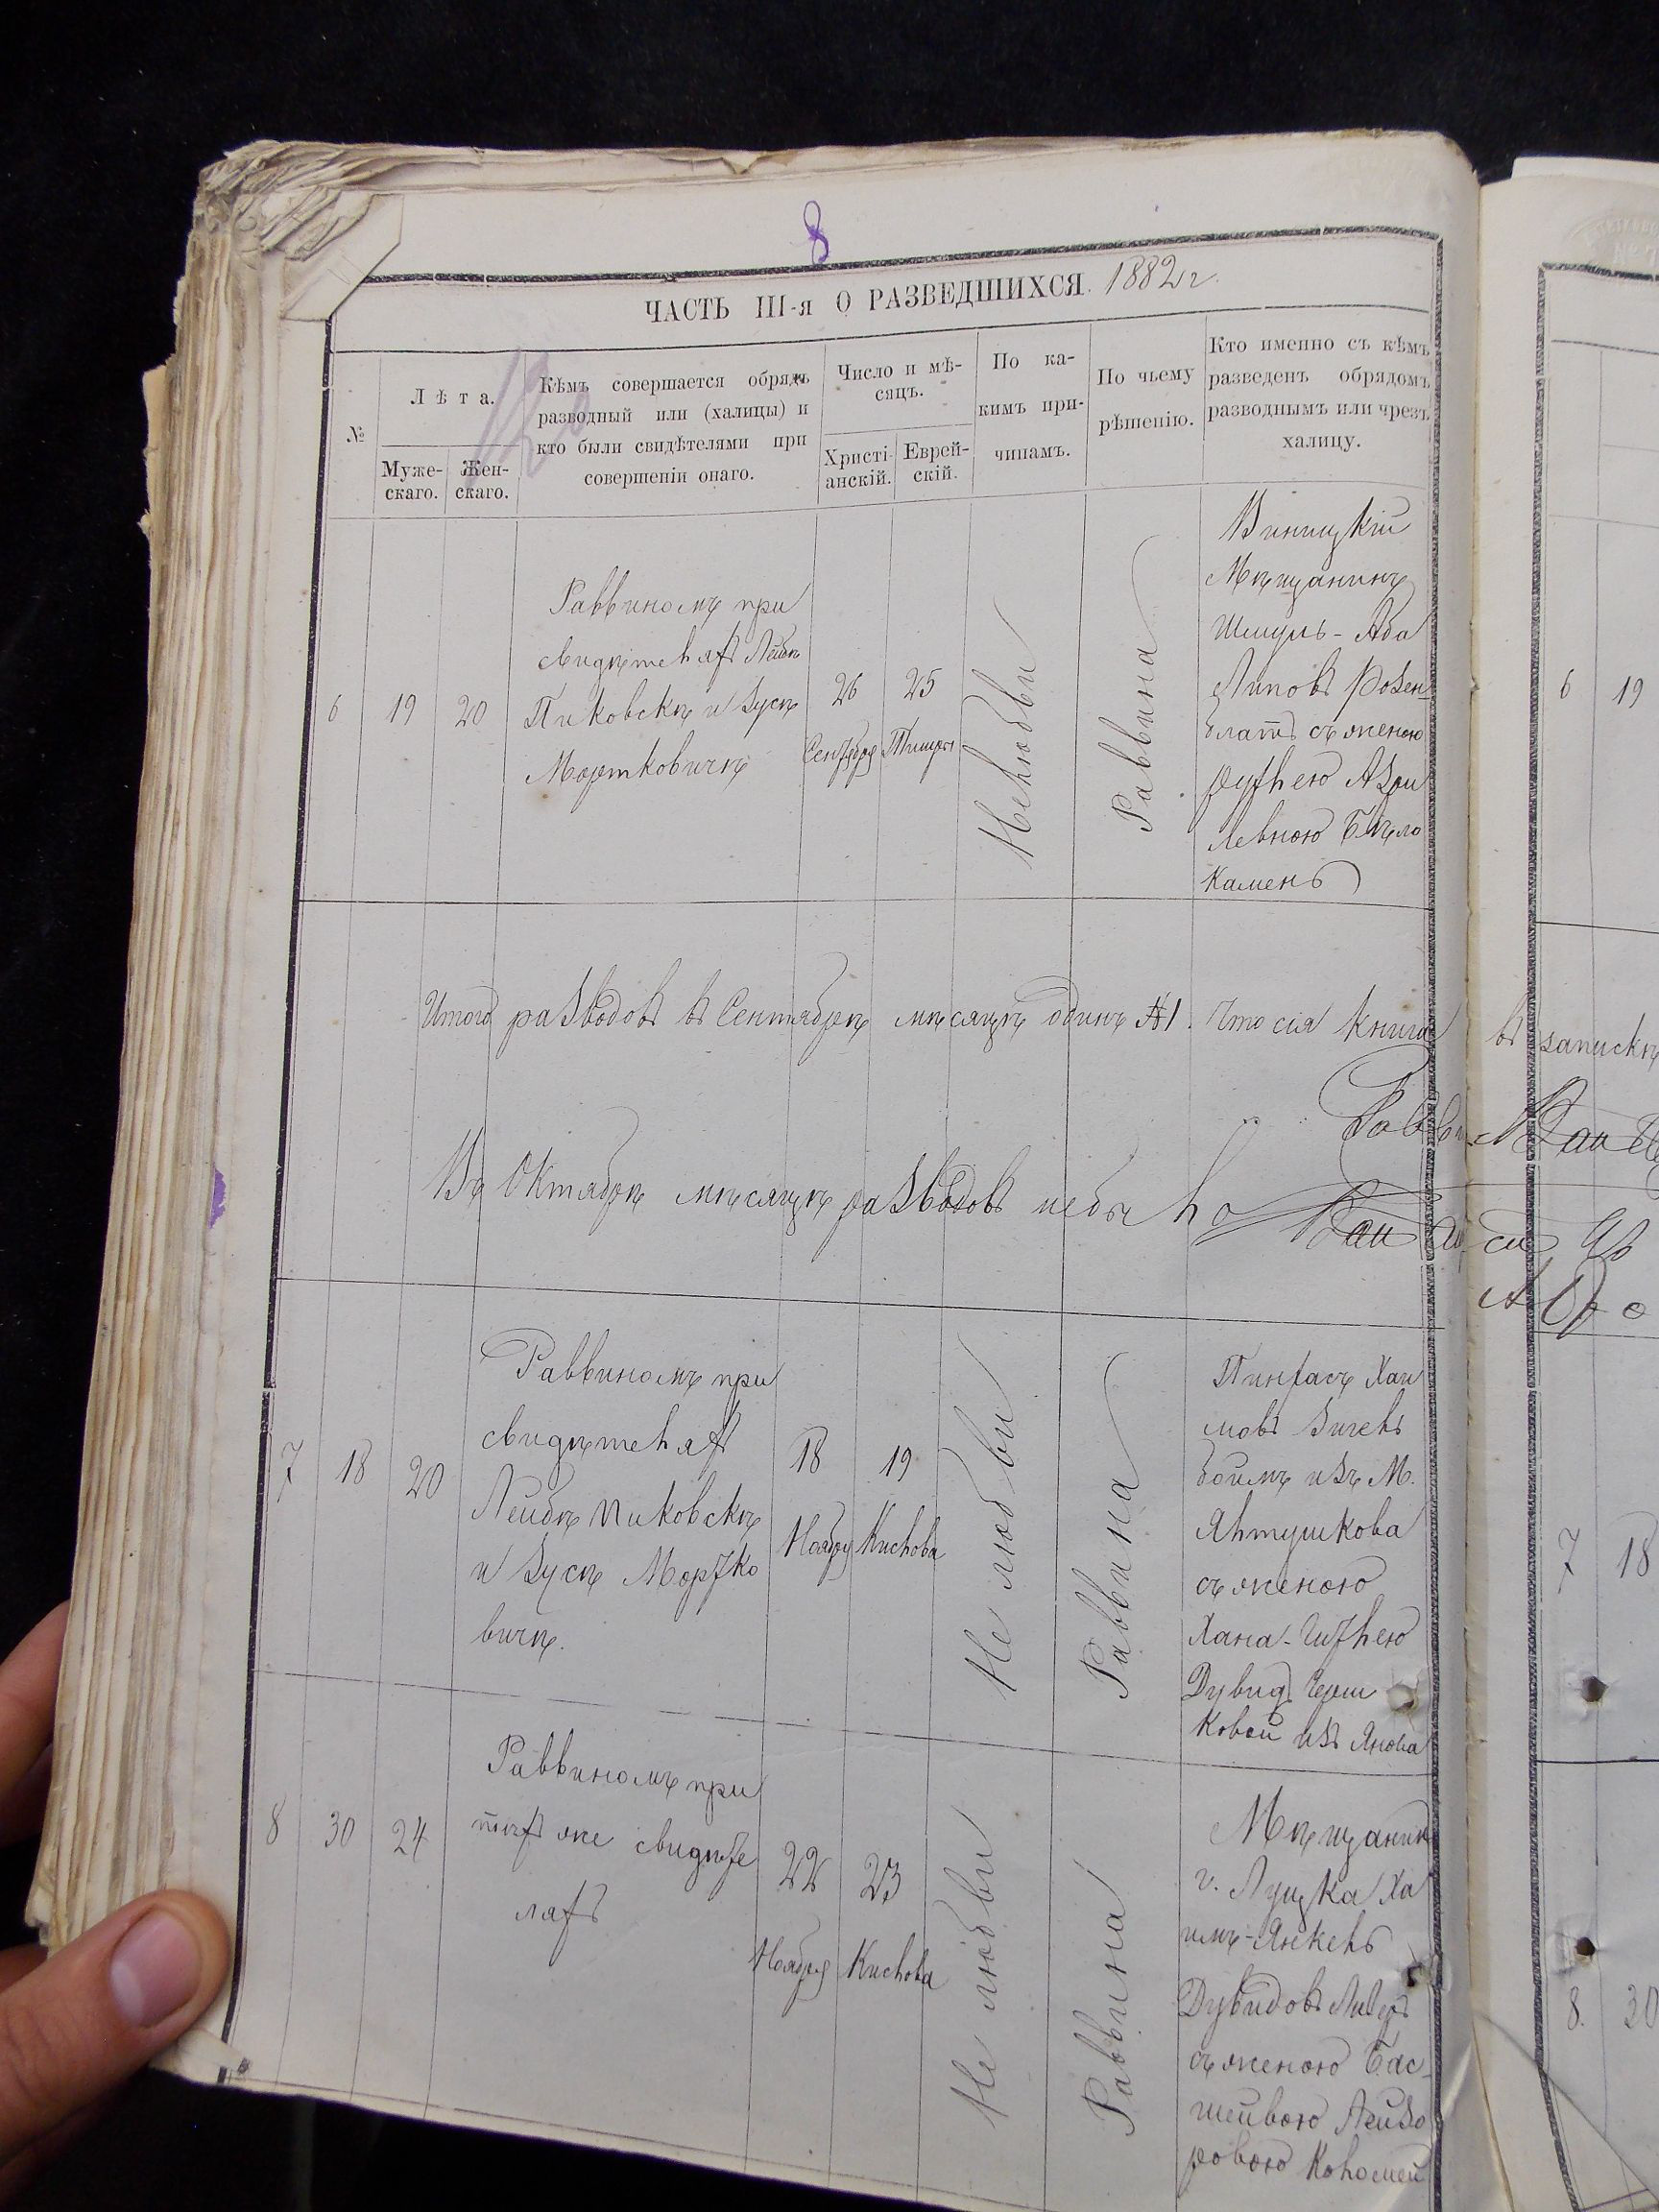 8
ЧАСТЬ III-я О РАЗВЕДШИХСЯ. 1882 г.
№
Лѣта.
Муже-
скаго.
Жен-
скаго.
Кѣмъ совершается обрядъ
разводный или (халицы) и
кто были свидѣтелями при
совершеніи онаго.
Число и мѣ-
сяцъ.
Христі-
анскій.
Еврей-
скій.
По ка-
кимъ при-
чинамъ.
По чьему
рѣшенію.
Кто именно съ кѣмъ
разведенъ обрядомъ
разводнымъ или чрезъ
халицу.
6
19
20
Раввиномъ при
свидѣтеляхъ Лейбѣ
Пиковскѣ и Зусѣ
Мортковичѣ
26
Сентября
25
Тишры
Нелюбви
Раввина
Виницкій
Мѣщанинъ
Шмуль-Аба
Липовъ Розен-
блатъ съ женою
Рухлею Азри
левною Бѣло
камень
Итого разводовъ въ Сентябрѣ мѣсяцѣ одинъ №1. Что сія книга въ запискѣ
Раввин
Въ Октябрѣ мѣсяцѣ разводовъ небыло
7
18
20
Раввиномъ при
свидѣтеляхъ
Лейбѣ Пиковскѣ
и Зусѣ Мортко
вичѣ.
18
Ноября
19
Кислова
Не любви
Раввина
Пинхасъ Хаи
мовъ Зигель
боимъ изъ М.
Ялтушкова
съ женою
Хана-
Дувид
ковой изъ Янова
8
30
24
Раввиномъ при
тѣхъ же свидѣте
ляхъ
22
Ноября
23
Кислова
Не любви
Раввина
Мѣщанин
г. Луцка Ха
имъ-Янкель
Дувидовъ
съ женою Бас-
шейвою Лейзо
ровою Коломей
6
19
7
18
8.
30